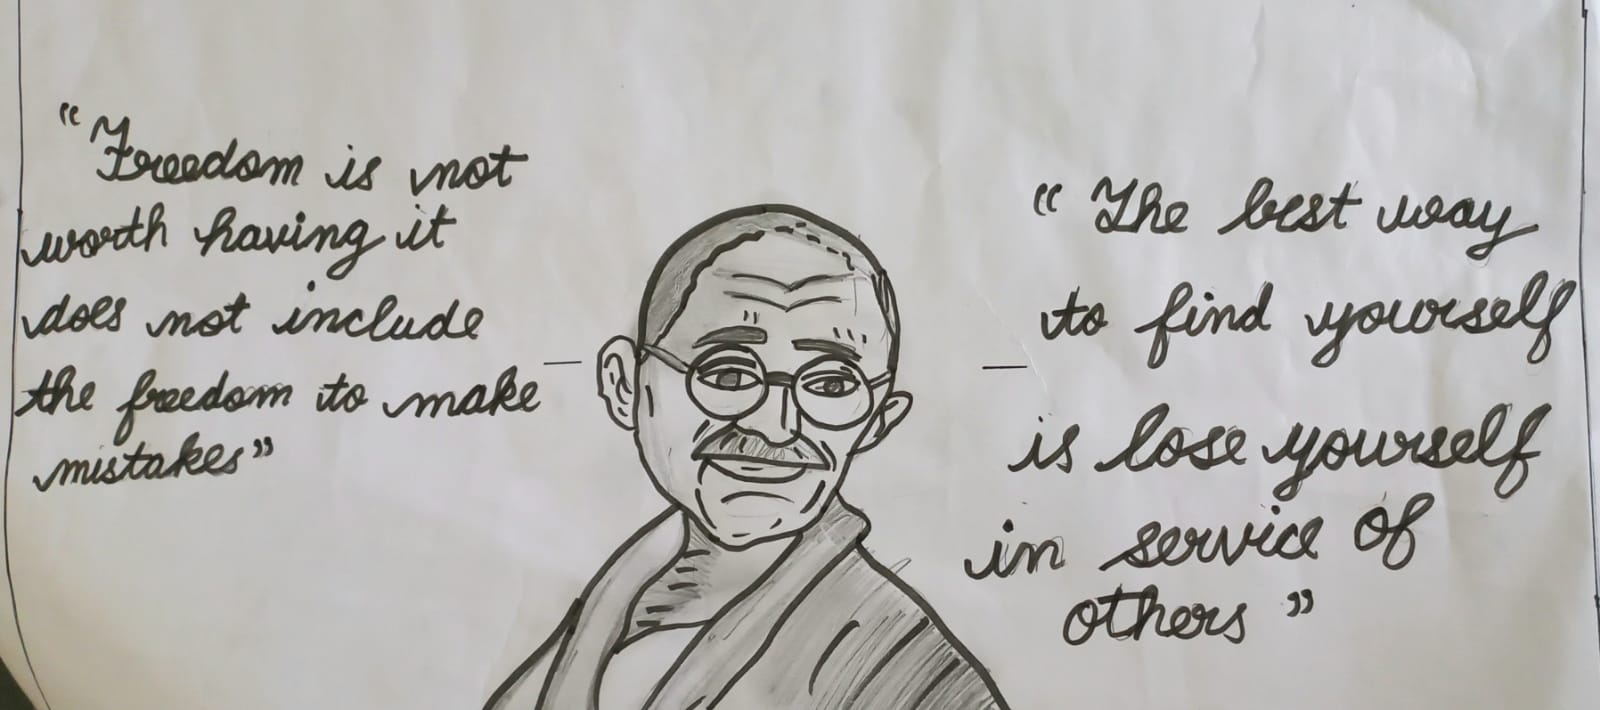 “ Freedom is not
worth having it
does not include
the freedom to make
mistakes”
“ The best way
to find yourself
is lose yourself
in service of
others ”